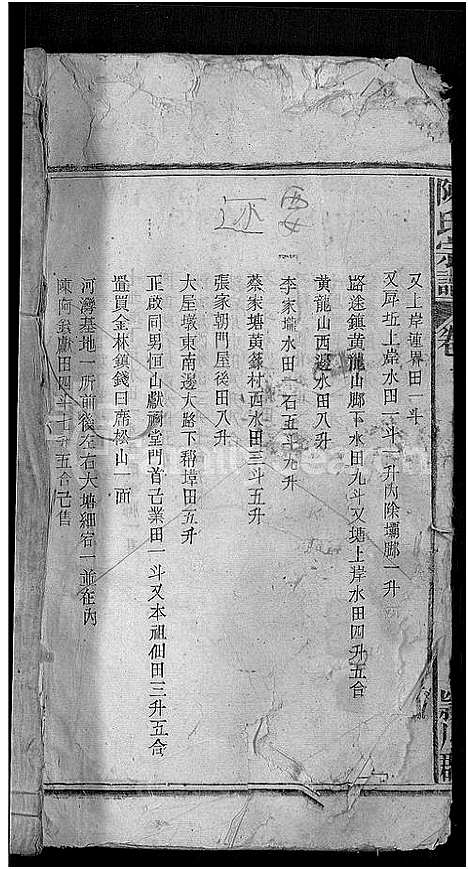 陳氏宗譜 卷
又上岸連界田一斗
又屏坵上岸水田一斗一升內除壩腳一升
路途鎮黃龍山腳下水田九斗又塘上岸水田四升五合
黃龍山西邊水田八升
李家壠水田一石五斗九升
蔡家塘黃篠村西水田三斗五升
張家朝門屋後田八升
大屋墩東南邊大路下稍埠田五升
正啟同男恒山獻祠堂門首己業田一斗又本祖仙田三升五合
疊買金林鎮錢日席松山一面
河灣基地一所前後左右大塘細宕一並在內
陳阿翁獻田四斗七升五合已售